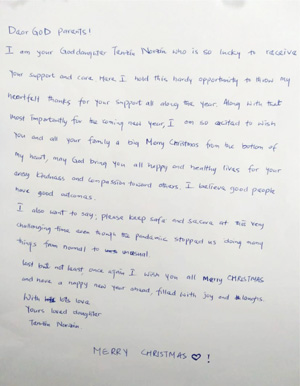 Dear GOD parents!
I am your Goddaughter Tenzin Norzin who is so lucky to receive
your support and care. Here I hold this handy opportunity to throw my
heartfelt thanks for your support all along the year. Along with that
most importantly for the coming new year, I am so excited to wish
you and all your family a big Merry Christmas from the bottom of
my heart, may God bring you all happy and healthy lives for your
every kindness and compassion toward others. I believe good people
have good outcomes.
I also want to say; please keep safe and secure at this very
challenging time even though the pandemic stopped us doing many
things from normal to unusual.
last but not least once again I wish you all Merry CHRISTMAS
and have a happy new year ahead, filled with joy and laughs.
With lots love
Yours loved daughter
Tenzin Norzin
MERRY CHRISTMAS ♡!